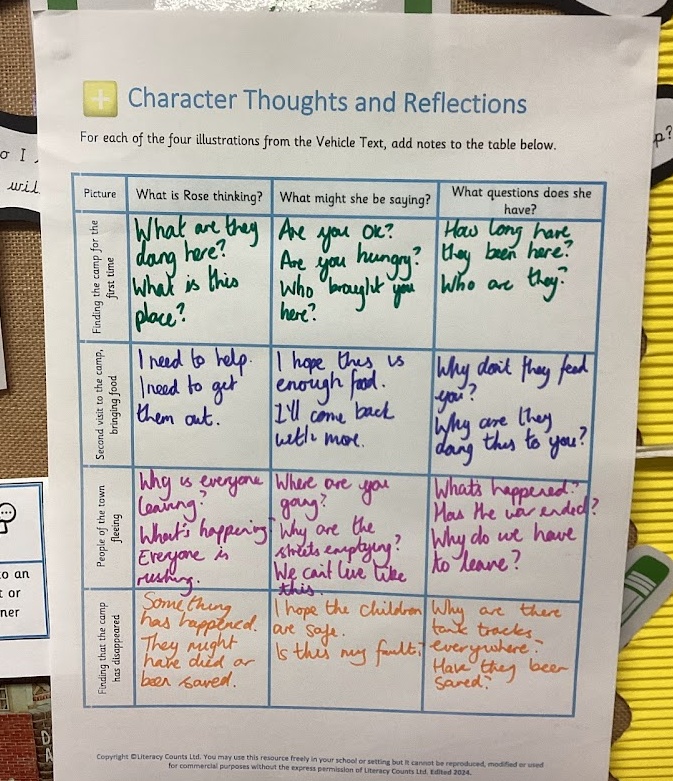 Character Thoughts and Reflections
For each of the four illustrations from the Vehicle Text, add notes to the table below.
Picture
What is Rose thinking?
What might she be saying?
What questions does she
have?
Finding the camp for the
first time
What are they
doing here?
What is this
place?
Are you ok?
Are you hungry?
Who brought you
here?
How long have
they been here?
Who are they?
Second visit to the camp,
bringing food
I need to help.
I need to get
them out.
I hope this is
enough food.
I'll come back
with more.
Why don't they feed
you?
Why are they
doing this to you?
People of the town
fleeing
Why is everyone
leaving?
What's happening?
Everyone is
rushing.
Where are you
going?
Why are the
streets emptying?
We can't live like
this.
What's happened?
Has the war ended?
Why do we have
to leave?
Finding that the camp
has disappeared
Something
has happened.
They might
have died or
been saved.
I hope the children
are safe.
Is this my fault?
Why are there
tank tracks
everywhere?
Have they been
saved?
Copyright ©Literacy Counts Ltd. You may use this resource freely in your school or setting but it cannot be reproduced, modified or used
for commercial purposes without the express permission of Literacy Counts Ltd. Edited 2024.
o I
wil
p?
o an
t or
ner